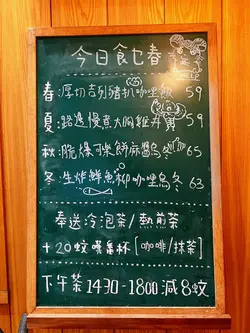 今日食乜春
春:厚切吉列豬扒咖喱飯 59
夏:路邊慢煮大胸雞丼 59
秋:脆爆可樂餅麻醬烏冬 65
冬:生炸鮮魚柳咖喱烏冬 63
奉送冷泡茶/熱煎茶
+20蚊嘆番杯[咖啡/抹茶]
下午茶1430-1800減8蚊